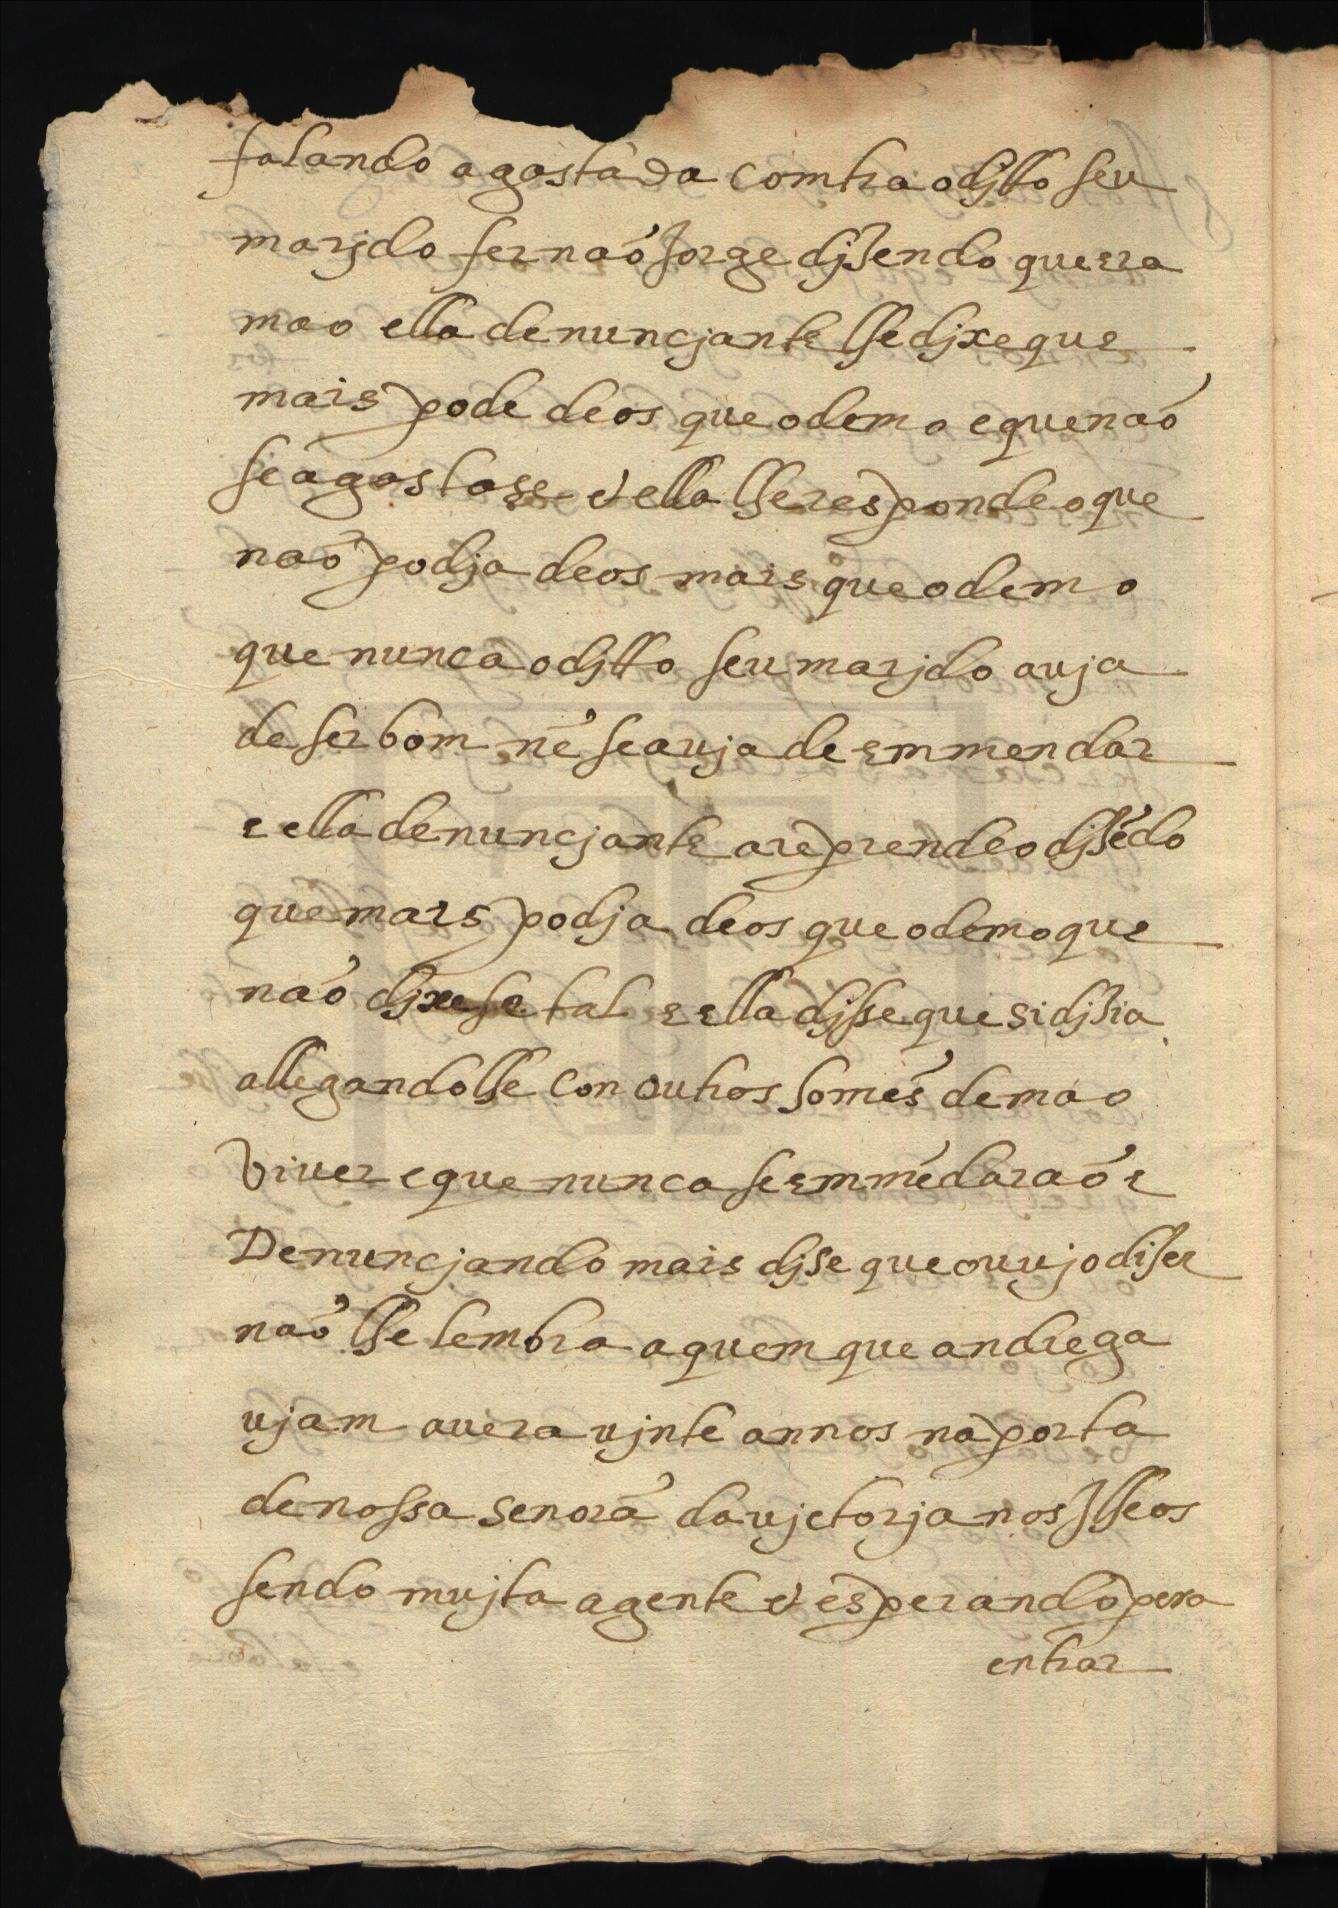 falando agastada comtra o djtto seu
marjdo fernaõ Jorge djzendo que era
mao ella denuncjante lhe djxe que
mais pode deos que o demo e que naõ
se agastasse e ella lhe respondeo que
naõ podja deos mais que o demo
que nunca o djtto seu marjdo auja
de ser bom nẽ se auja de emmendar
e ella denuncjante a reprendeo djzẽdo
que mais podja deos que o demo que
naõ djxese tal e ella djsse que si djzia
allegandolhe con outros homẽs de mao
viver e que nunca se emmẽdaraõ e
Denuncjando mais djse que ouujo dizer
naõ lhe lembra a quem que andrega
ujam auera vjnte annos na porta
de nossa senora da vjctorja nos Jlheos
sendo mujta a gente e esperando pera
entrar